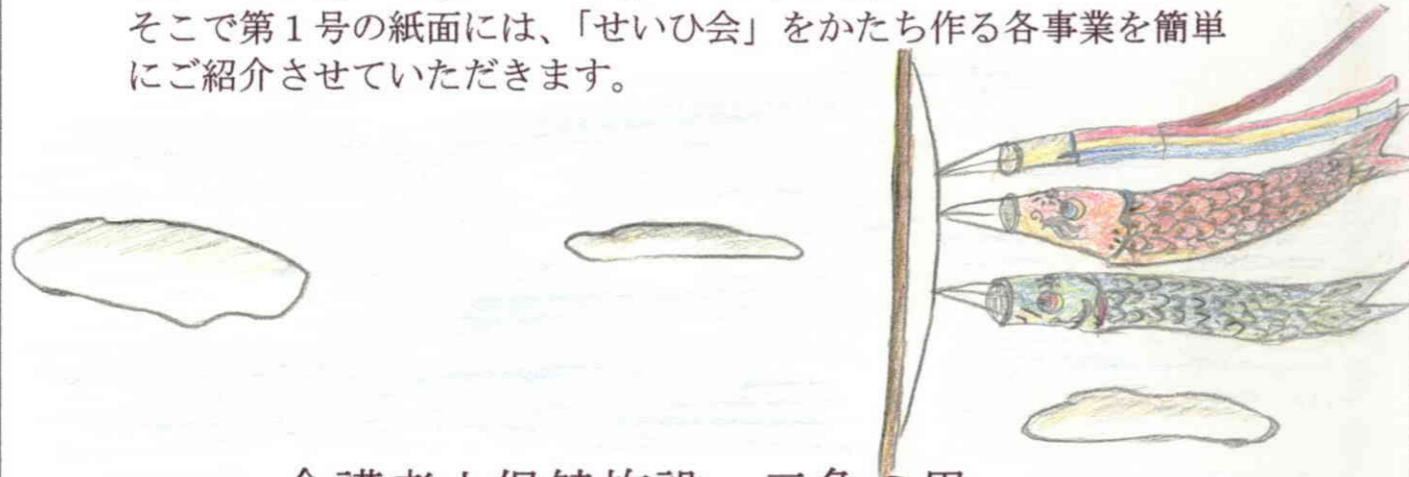 そこで第１号の紙面には、「せいひ会」をかたち作る各事業を簡単
にご紹介させていただきます。
介護老人保健施設　三